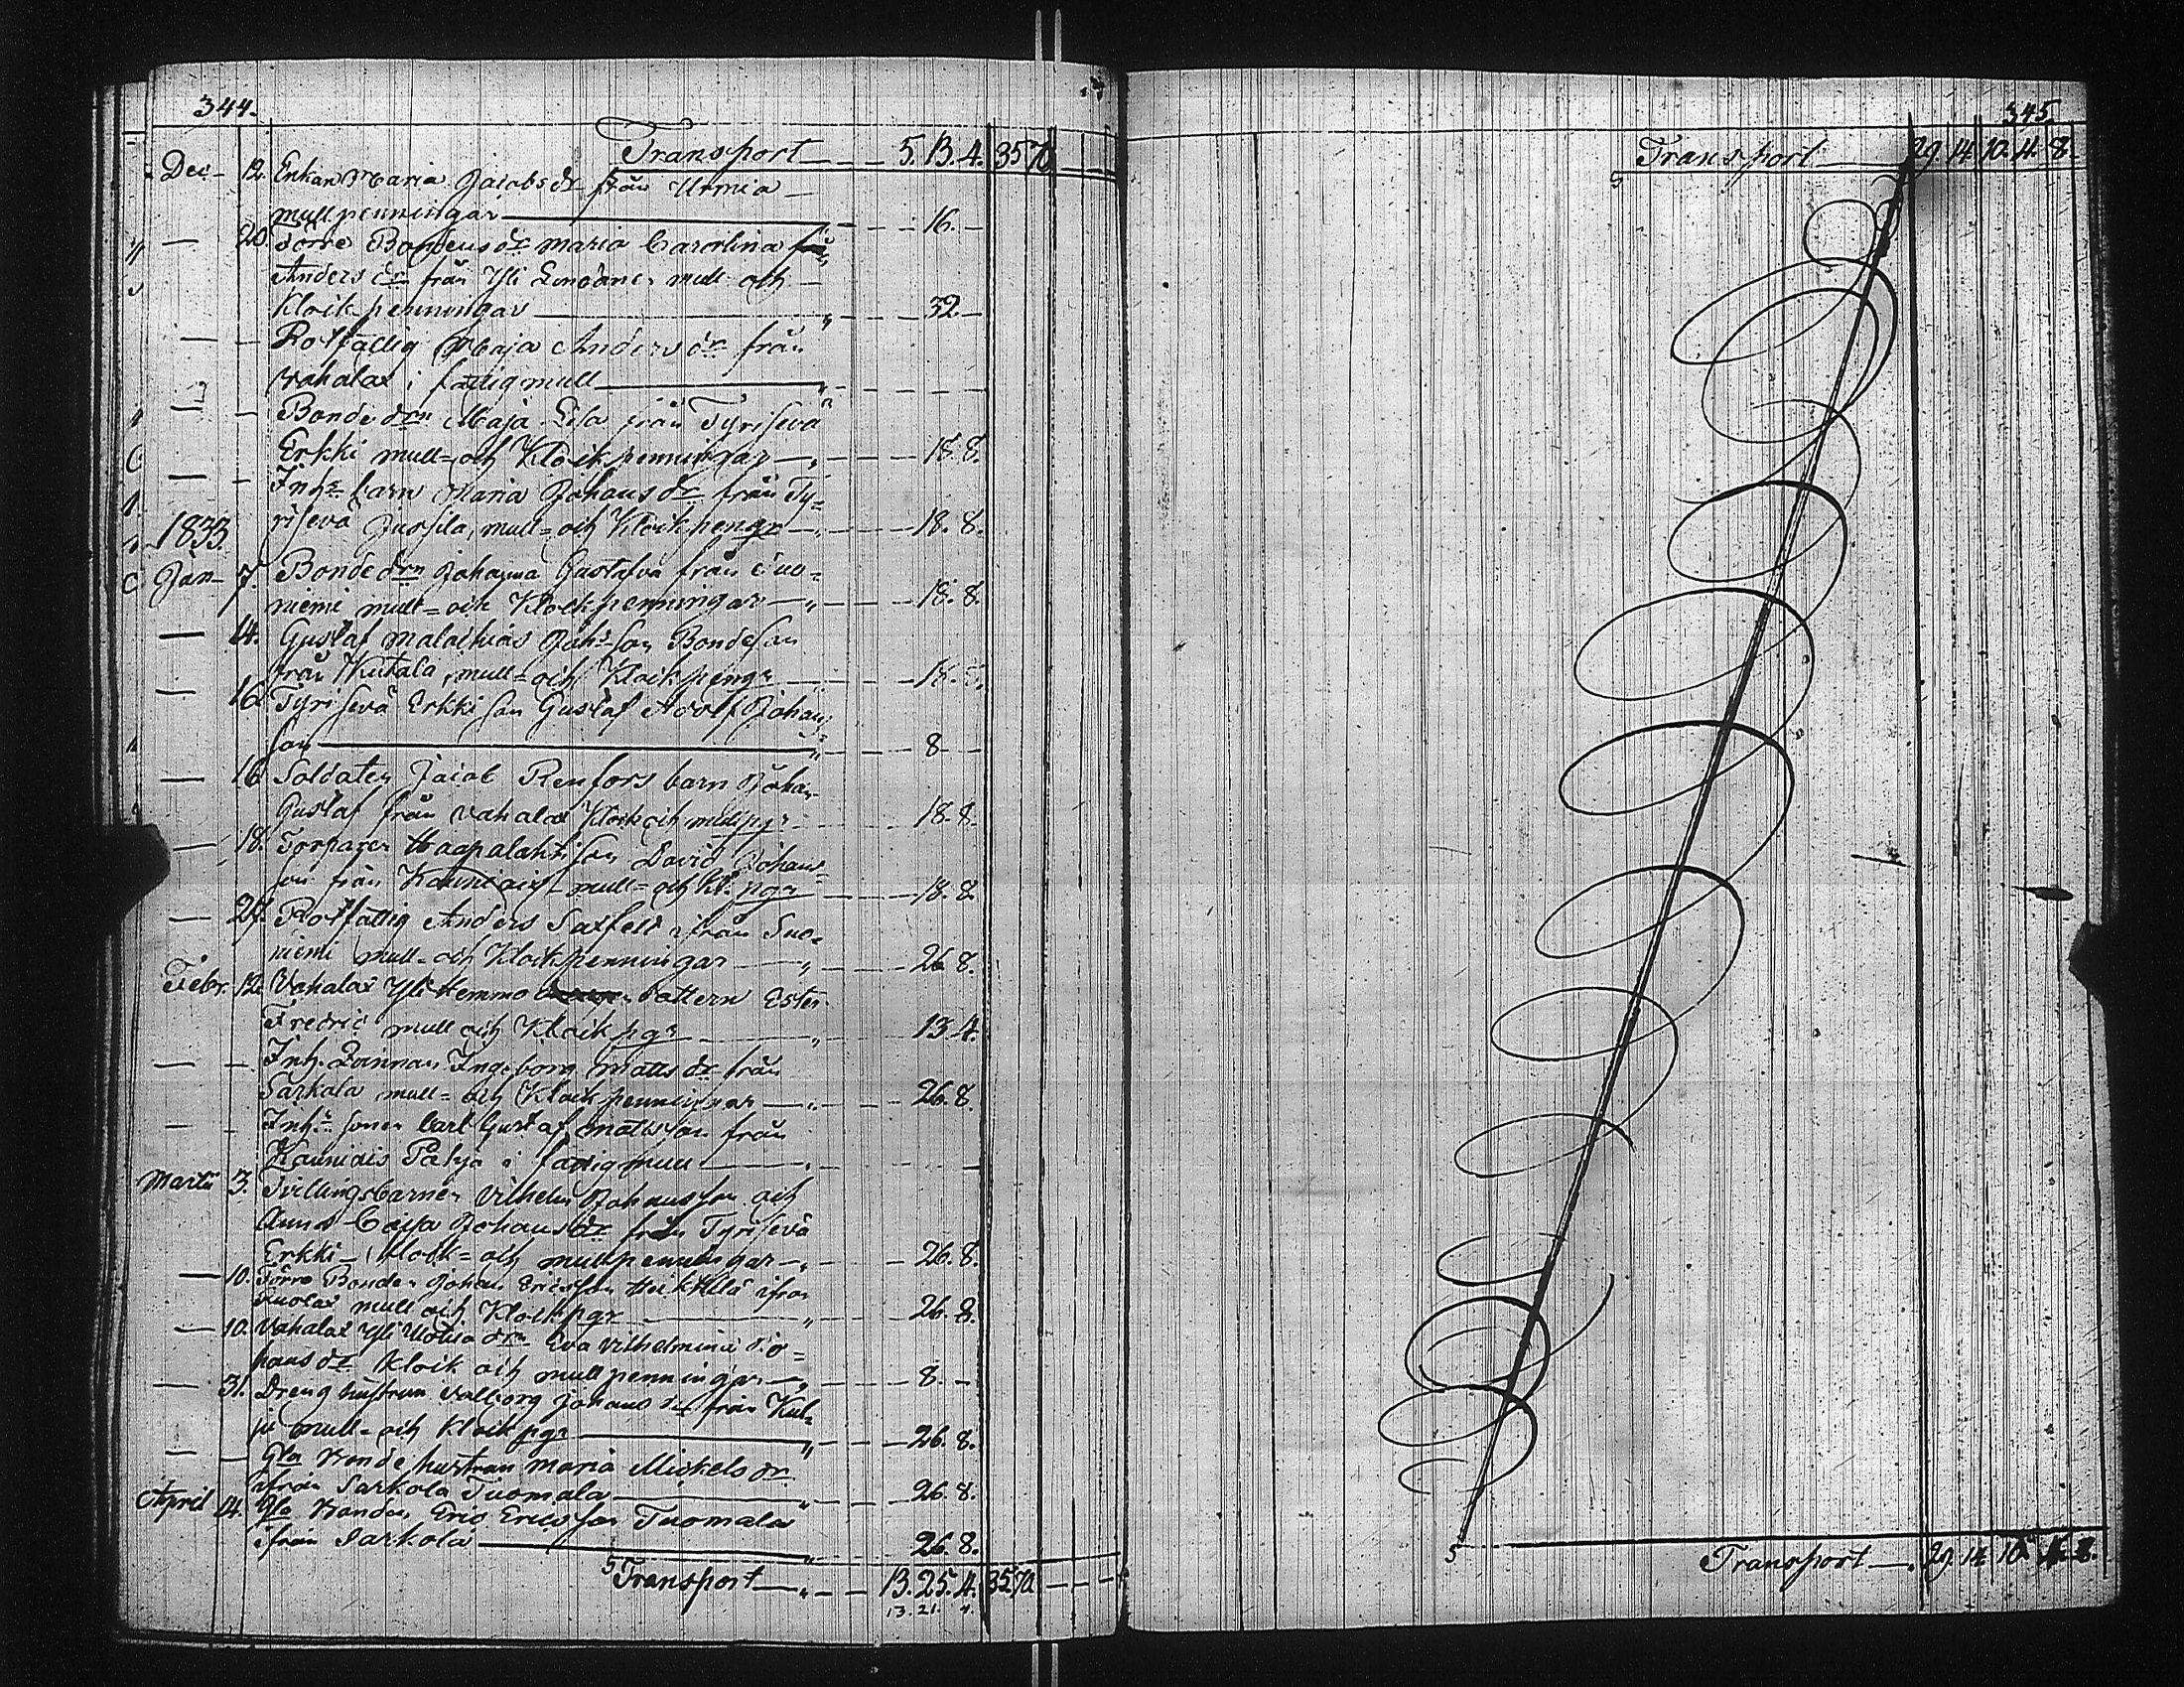 344.
Transport 5. 13. 4. 35 70
Dec 12. Enkan Maria Jacobs dr från Urmia
mullpenningar 16.
20. Förre Bondens dr Maria Carolina
Anders dr från Yli mull och
Klock penningar 32
Rotfattig Maja Anders dr från
Vahalax i fattigmull
Bonde drn Maja Lisa från Tyrisevä
Erkki mull= och Klockpenningar 18. 8.
Inhs barn Maria Johans dr från Ty=
risevä Jussila, mull= och Klockpengr 18. 8.
1833
Jan 7. Bonde drn Johanna Gustafva från Suo=
niemi mull= och Klockpenningar 18. 8.
14. Gustaf Malachias Johs son Bondeson
från Kutala, mull= och Klockpengr 18. 8.
16. Tyrisevä Erkki son Gustaf Adolf Johans
son 8
16 Soldaten Jacob Renfors barn Johan
Gustaf från Vahalax Klock och mullpgr 18. 8.
18. Torparen Haapalahti son David Johans
son från Kauniais mull= och Kl. pgr 18. 8
24. Rotfattig Anders Saxfelt ifrån Suo=
niemi mull= och Klockpenningar 26 8.
Febr. 12. Vahalax Yli Hemmo dottern Ester
Fredric mull och Klockpgr 13. 4.
Inh. Qvinnan Ingeborg Matts dr från
Sarkola mull= och Klockpenningar 26. 8.
Inhs sonen Carl Gustaf Mattsson från
Kauniais i fattigmull
Martii 3. Tvillingsbarnen Vilhelm Johansson och
Anna Caisa Johans dr från Tyrisevä
Erkki Klock= och mullpenningar 26. 8.
10. Förre Bonden Johan Ericsson Heikkilä ifrån
mull och Klockpgr 26. 8.
10. Vahalax Yli drn Eva Vilhelmina Jo=
hans dr Klock och mullpenningar 8.
31. Dreng hustrun Valborg Johans dr från Kul=
ju mull= och Klockpgr 26. 8.
Gla Bonde hustrun Maria Mickels dr
ifrån Sarkola Tuomala 26. 8.
April 14. Gla Bonden Eric Ericsson Tuomala
ifrån Sarkola 26. 8.
Transport 13. 25. 4. 35 70
13. 21. 4.
345.
Transport 29. 14 10. 4. 8.
Transport 29. 14 10 4. 8.